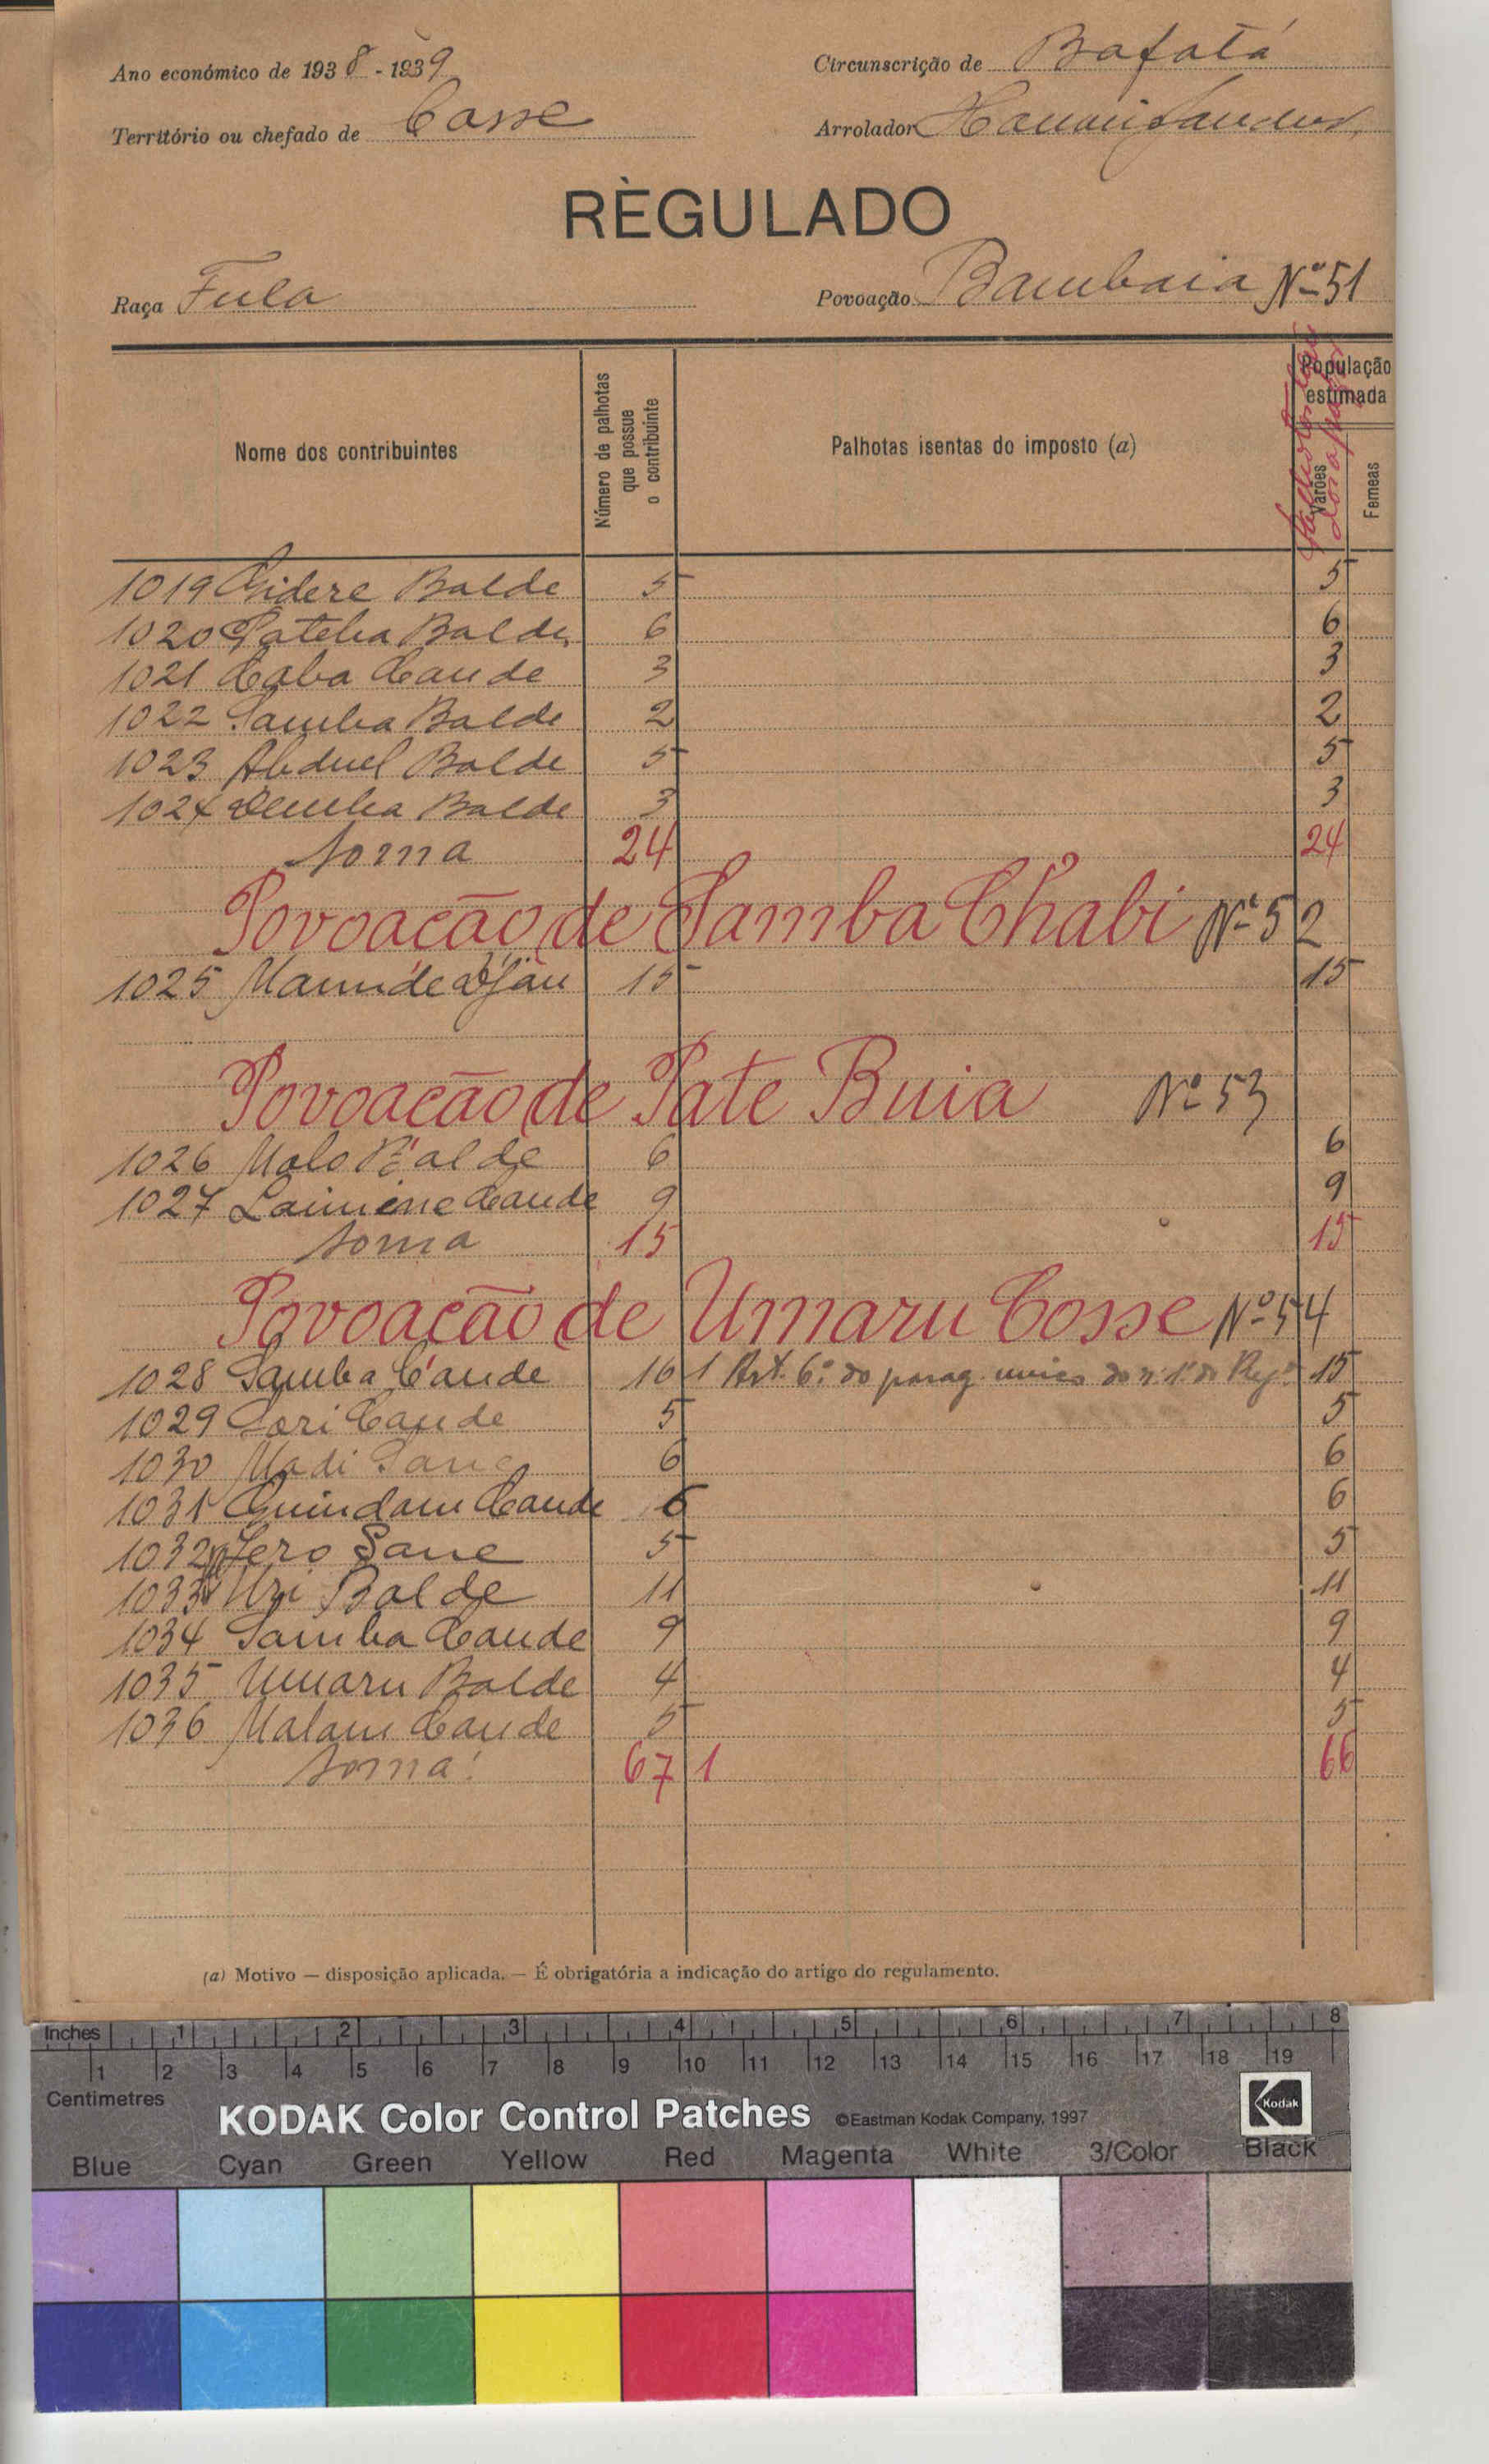 Ano económico de 1938 - 1939
Circunscrição de Bafatá
Território ou chefado de Cosse
Arrolador
RÈGULADO
Raça Fula
Povoação Bambaia Nº 51
Nome dos contribuintes
Número de palhotas que possue o contribuinte
Palhotas isentas do imposto (a)
População estimada
Varões
Femeas
1019 Gidere Balde 5 5
1020 Pateba Balde 6 6
1021 Caba Cande 3 3
1022 Samba Balde 2 2
1023 Abduel Balde 5 5
1024 Demba Balde 3 3
Soma 24 24
Povoacão de Samba Chabi Nº 52
1025 15 15
Povoacão de Pate Buia Nº 53
1026 Malo Balde 6 6
1027 Laimene Cande 9 9
Soma 15 15
Povoacão de Umaru Cosse Nº 54
1028 Samba Cande 16 1 Art. 6º do parag. unico do nº 1º do Regº 15
1029 Sori Cande 5 5
1030 Madi Sane 6 6
1031 Guindam Cande 6 6
1032 Jero Sane 5 5
1033 Uri Balde 11 11
1034 Samba Cande 9 9
1035 Umaru Balde 4 4
1036 Malam Cande 5 5
Soma 67 1 66
(a) Motivo — disposição aplicada. — É obrigatória a indicação do artigo do regulamento.
Inches 1 2 3 4 5 6 7 8
1 2 3 4 5 6 7 8 9 10 11 12 13 14 15 16 17 18 19
Centimetres
KODAK Color Control Patches ©Eastman Kodak Company, 1997 Kodak
Blue Cyan Green Yellow Red Magenta White 3/Color Black